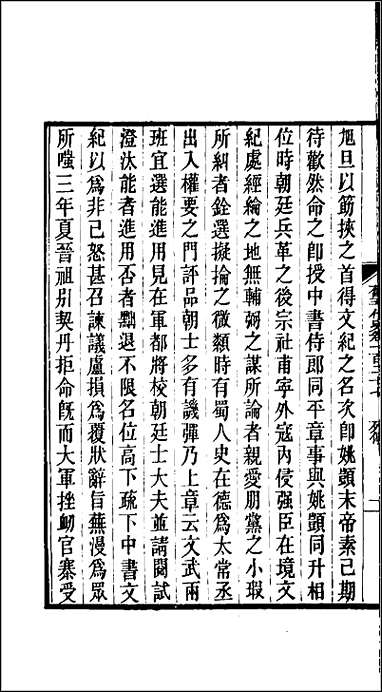 旭旦以筯挾之首得文紀之名次卽姚顗末帝素已期
待歡然命之卽授中書侍郎同平章事與姚顗同升相
位時朝廷兵革之後宗社甫寧外寇內侵强臣在境文
紀處經綸之地無輔弼之謀所論者親愛朋黨之小瑕
所糾者銓選擬掄之微類時有蜀人史在德爲太常丞
出入權要之門評品朝士多有譏彈乃上章云文武兩
班宜選能進用見在軍都將校朝廷士大夫並請閱試
澄汰能者進用否者黜退不限名位高下疏下中書文
紀以爲非己怒甚召諫議盧損爲覆狀辭旨蕪漫爲眾
所嗤三年夏晉祖引契丹拒命旣而大軍挫衂官寨受